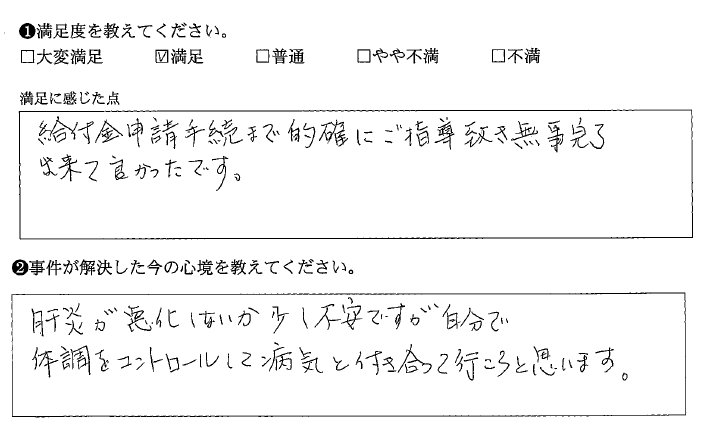 ❶満足度を教えてください。
□大変満足 ☑満足 □普通 □やや不満 □不満
満足に感じた点
給付金申請手続まで的確にご指導致き無事完了
出来て良かったです。
❷事件が解決した今の心境を教えてください。
肝炎が悪化しないか少し不安ですが自分で
体調をコントロールして病気と付き合って行こうと思います。